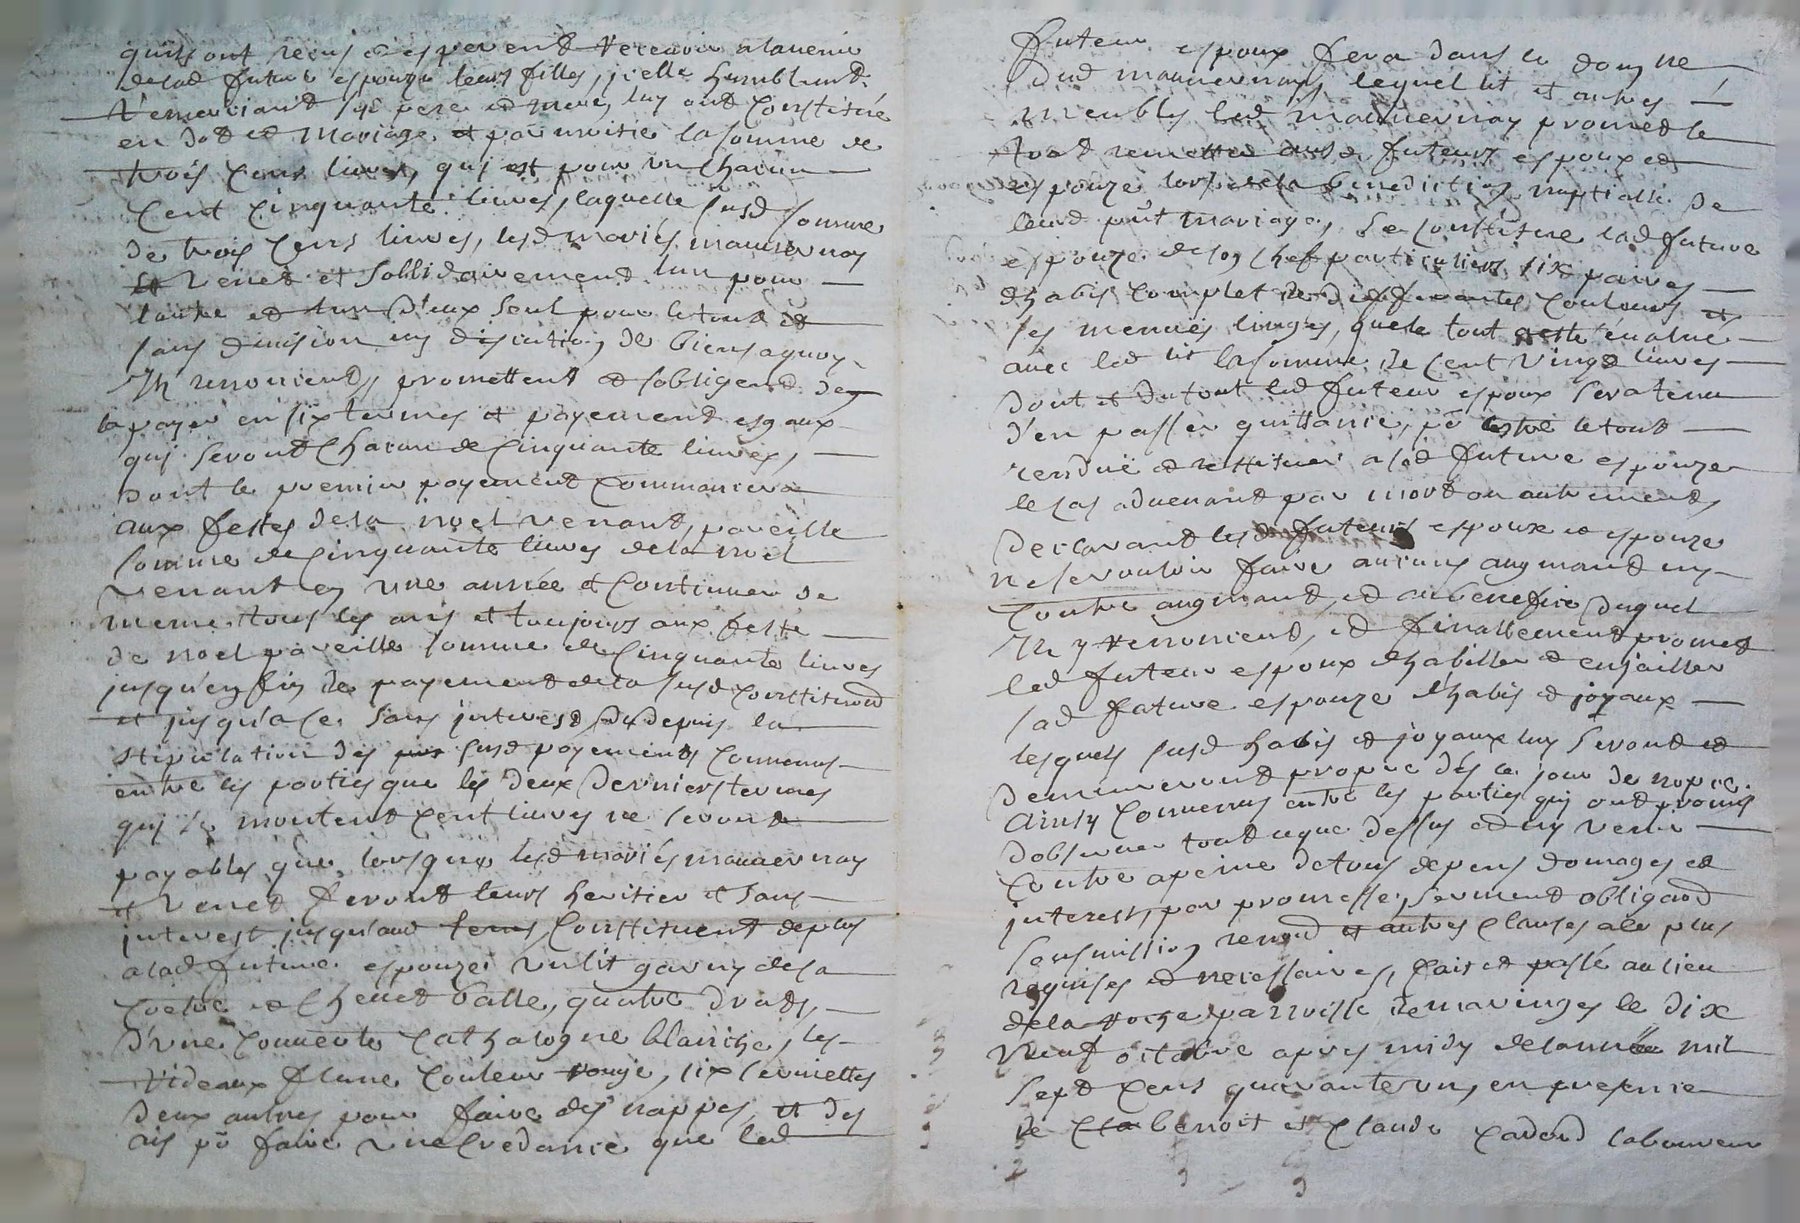 quils ont reçus & esperent recevoir a lavenir
de lad future espouze leurs filles, jcelle humblemt
remerciant ses pere et mere, luy ont constitué
en dot et mariage et par moitié la somme de
trois cens livres, quj est pour un chacun
cent cinquante livres, laquelle susd somme
de trois cens livres, lesd mariés mauvernay
et venet et sollidairement lun pour
lautre et lun d'eux seul pour le tout et
sans division ny discution de biens aquoy
Ils renoncient, promettent et sobligent de
la payer en six termes et payement esgaux
quj seront chacun de cinquante livres,
dont le premier payement commancera
aux festes de la noel venant, pareille
somme de cinquante livres de la noel
venant en une année et continuer de
meme tous les ans et toujours aux feste
de noel pareille somme de cinquante livres
jusqu'en fin de payement de la susd constituon
et jusqu'a ce sans jnterest du depuis la
stipulation des susd payements convenus
entre les parties que les deux derniers termes
quj se montent cent livres ne seront
payables que lorsque lesd mariés mauvernay
et venet feront leurs heritier et sans
jnterest jusqu'aud tems, constituent de plus
a lad future espouze un lit garny de sa
coetre et chevet balle, quatre draps,
d'une couverte cathalogne blanche, les
rideaux flane couleur rouge, six serviettes
deux autres pour faire des nappes, et des
ais pr faire une credance que led
futeur espoux fera dans le domaine
dud mauvernay, lequel lit et autres
meubles led mauvernay promet le
tout remettre ausd futeurs espoux et
espouze lors de la benediction nuptialle de
leurd pnt mariage, se constitue lad future
espouze de son chef particuliers six paires
d'habis complet de differantes couleurs et
ses menues linges, que le tout a esté evalué
avec led lit la somme de cent vingt livres
dont et du tout led futeur espoux sera tenu
d'en passer quittance, pr estre le tout
rendue et restituer a lad future espouze
le cas advenant par mort ou autrement,
declarant lesd futeurs espoux et espouze
ne se vouloir faire aucuns augmant ny
contre augmant, et au benefice duquel
Ils y renoncient, et finallement promet
led futeur espoux d'habiller et enjoailler
sad future espouze d'habis et joyaux
lesquels susd habis et joyaux luy seront et
demeureront propre dés ce jour de nopce.
ainsy convenus entre les parties quj ont promis
d'observer tout ce que dessus et ny venir
contre a peine de tous depens domages et
jnterests, par promesse, serment obligaon
sousmission renond et autres clauses a ce plus
requises et necessaires, fait et passé au lieu
de la roche parroisse de maringes le dix
neuf octobre apres midy de l'année mil
sept cens quarante un, en presence
de benoit et claude cadord laboureur